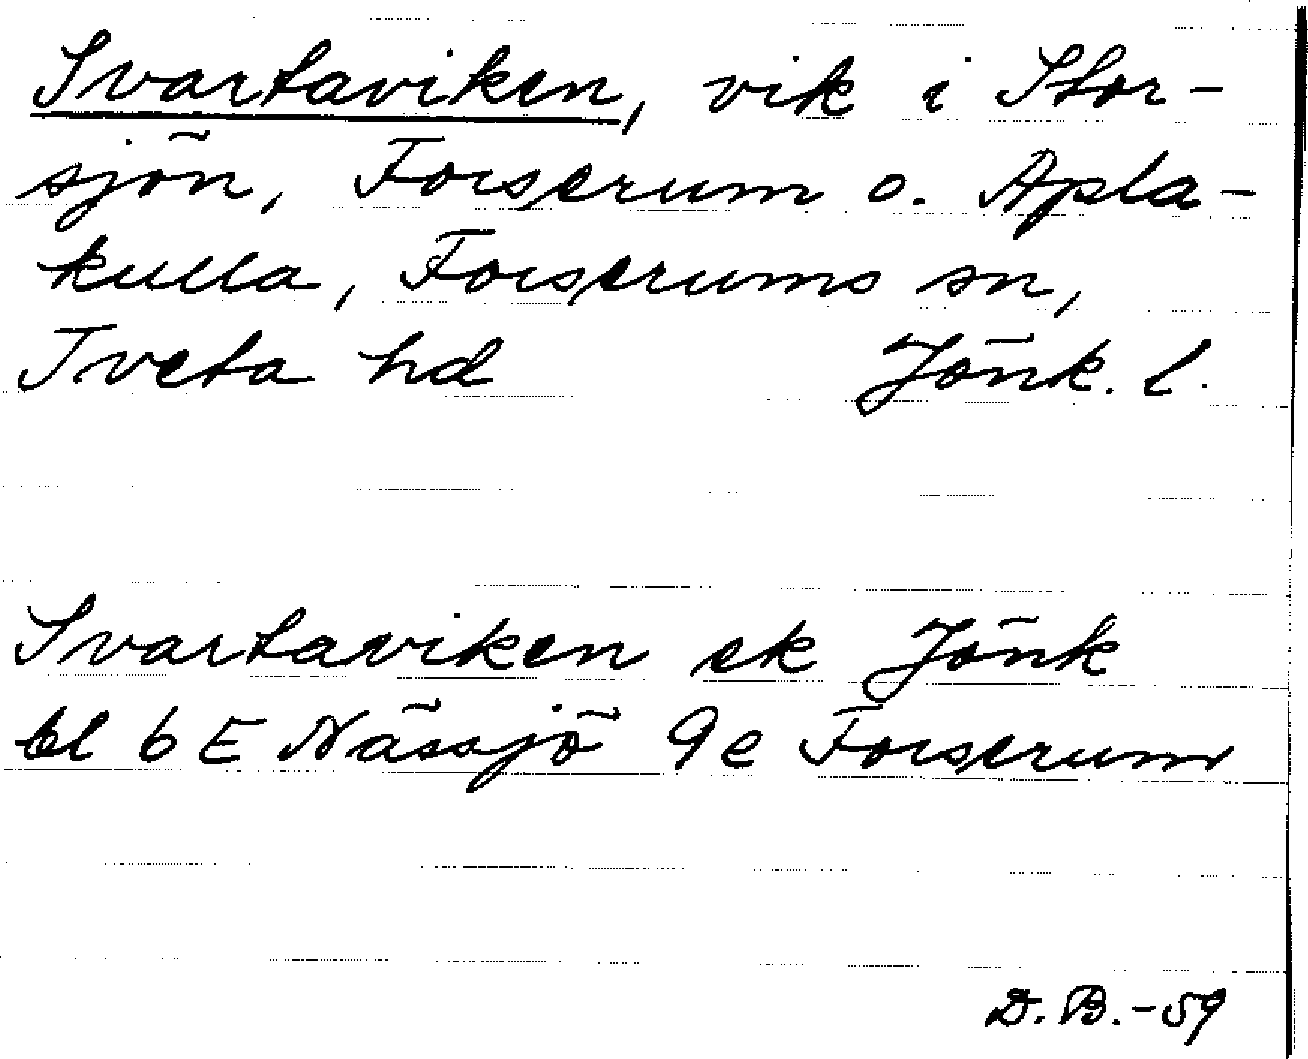 Svartaviken, vik i Stor-
sjön, Forserum o. Apla-
kulla, Forserums sn,
Tveta hd Jönk. l.
Svartaviken ek Jönk
bl 6 E Nässjö 9e Forserum
D. B. - 59